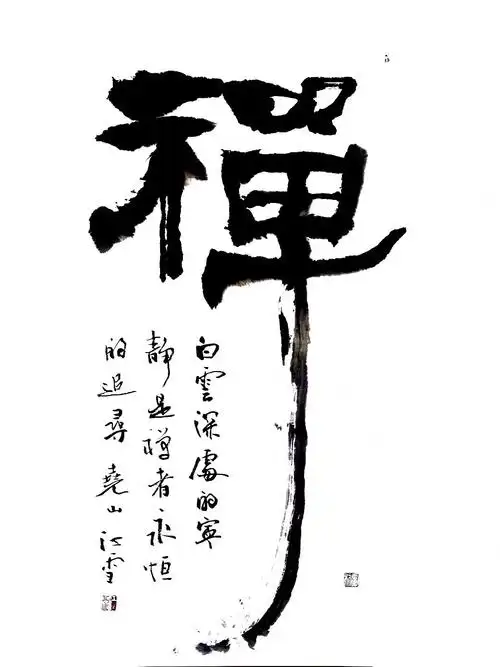 禪
白雲深處的寧
靜是禪者永恒
的追尋 堯山 江雪